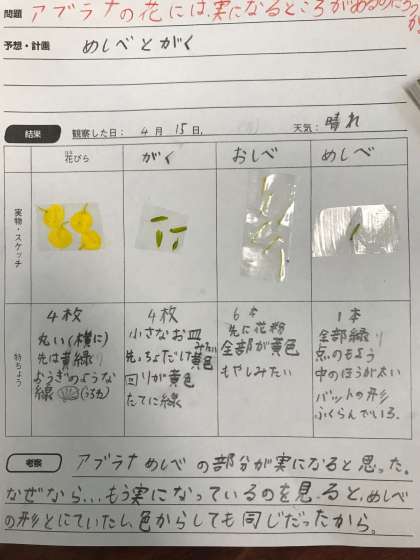 問題 アブラナの花には、実になるところがあるのだろう
予想・計画 めしべとがく
結果 観察した日: 4月15日, 天気: 晴れ
花びら がく おしべ めしべ
実物・スケッチ
特ちょう
4枚
丸い(横に)
先は黄緑り
おうぎのような
線
4枚
小さなお皿みたい
先,ちょだけ黄色
回りが黄色
たてに線
6本
先に花粉
全部が黄色
もやしみたい
1本
全部緑り
点のもよう
中のほうが太い
バットの形
ふくらんでいる.
考察 アブラナめしべの部分が実になると思った。
なぜなら...もう実になっているのを見ると,めしべ
の形とにていたし、色からしても同じだったから。